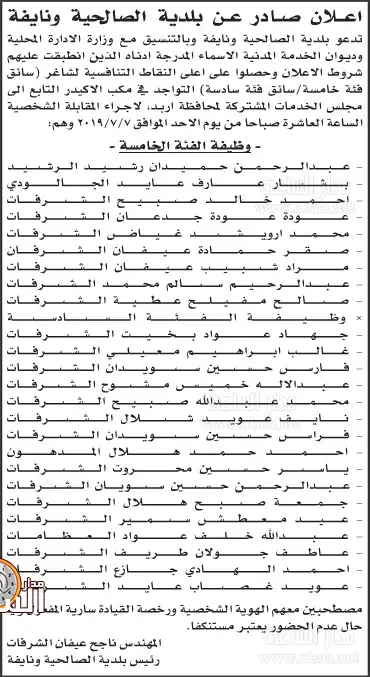 اعلان صادر عن بلدية الصالحية ونايفة
تدعو بلدية الصالحية ونايفة وبالتنسيق مع وزارة الادارة المحلية
وديوان الخدمة المدنية الاسماء المدرجة ادناه الذين انطبقت عليهم
شروط الاعلان وحصلوا على اعلى النقاط التنافسية لشاغر (سائق
فئة خامسة/سائق فئة سادسة) التواجد في مكب الاكيدر التابع الى
مجلس الخدمات المشتركة لمحافظة اربد، لاجراء المقابلة الشخصية
الساعة العاشرة صباحا من يوم الاحد الموافق ٢٠١٩/٧/٧ وهم:
- وظيفة الفئة الخامسة -
- عبدالرحمن حميدان رشيد الرشيد
- بشار عارف عايد الجالودي
- احمد خالد صبيح الشرفات
- عودة عودة جدعان الشرفات
- محمد ارويشد غياض الشرفات
- صقر حمادة عيفان الشرفان
- مراد شبيب عيفان الشرفات
- عبدالرحيم سالم محمد الشرفات
- صالح مفيلح عطية الشرفات
× وظيفة الفئة السادسة
- جهاد عواد بخيت الشرفات
- غالب ابراهيم معيلي الشرفات
- فارس حسين سويدان الشرفات
- عبدالاله خميس مشوح الشرفات
- محمد عبدالله صبيح الشرفات
- نايف شلال الشرفات
- فراس حسين سويدان الشرفات
- احمد حمد هلال المدهون
- ياسر حسين محروت الشرفات
- عبدالرحمن حسين سويان الشرفات
- جمعة صبح هلال الشرفات
- عيد معطش سمير الشرفات
- عبدالله خلف عواد العظامات
- عاطف جولان طريف الشرفات
- احمد الهادي جازع
- عويد غصاب عايد
مصطحبين معهم الهوية الشخصية ورخصة القيادة سارية
حال عدم الحضور يعتبر مستنكفا.
المهندس ناجح عيفان الشرفات
رئيس بلدية الصالحية ونايفة